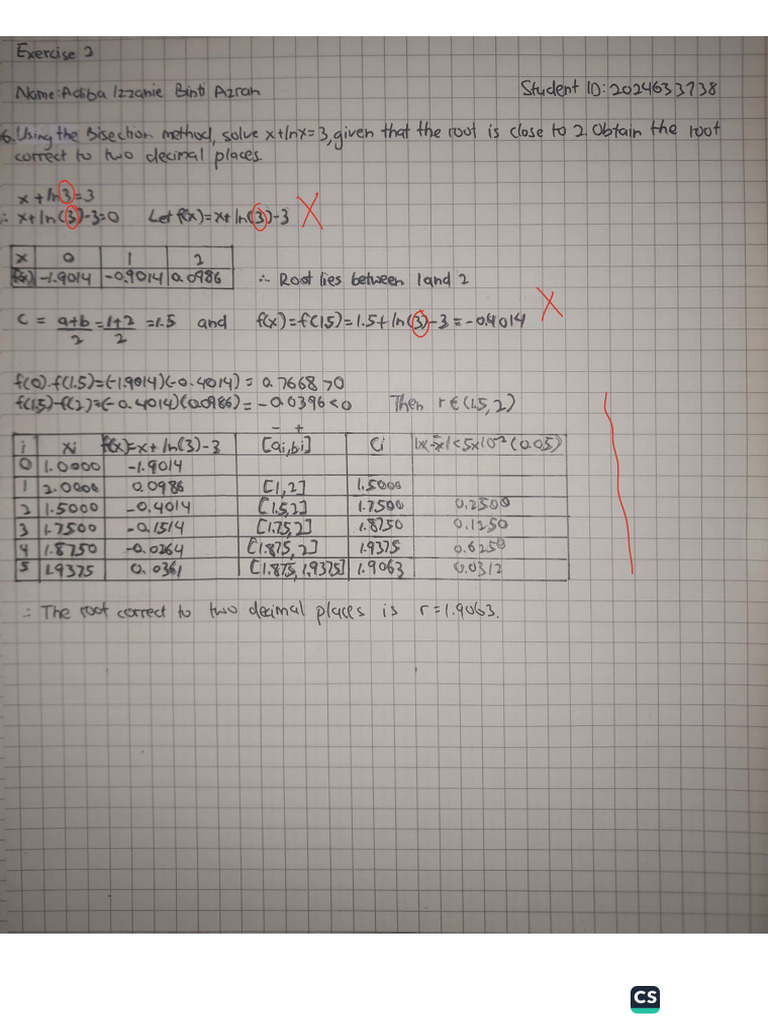 Exercise 2
Name: Adiba Izzanie Binti Azran Student ID: 2024633738
6. Using the Bisection method, solve x+lnx=3, given that the root is close to 2. Obtain the root
correct to two decimal places.
x + ln 3 = 3
∴ x + ln(3)-3=0 Let f(x)=x+ln(3)-3 X
x 0 1 2
f(x) -1.9014 -0.9014 0.0986 ∴ Root lies between 1 and 2
C = a+b/2 = 1+2/2 = 1.5 and f(x)=f(1.5)=1.5+ln(3)-3=-0.4014 X
f(0).f(1.5)=(-1.9014)(-0.4014) = 0.7668 >0
f(1.5)-f(2)=(-0.4014)(0.0986) = -0.0396 <0 Then r∈(1.5,2)
- +
i xi f(x)=x+ln(3)-3 [ai,bi] Ci |x-x|<5x10⁻² (0.05)
0 1.0000 -1.9014
1 2.0000 0.0986 [1,2] 1.5000
2 1.5000 -0.4014 [1.5,2] 1.7500 0.2500
3 1.7500 -0.1514 [1.75,2] 1.8750 0.1250
4 1.8750 -0.0264 [1.875,2] 1.9375 0.6250
5 1.9375 0.0361 [1.875,1.9375] 1.9063 0.0312
∴ The root correct to two decimal places is r=1.9063.
CS